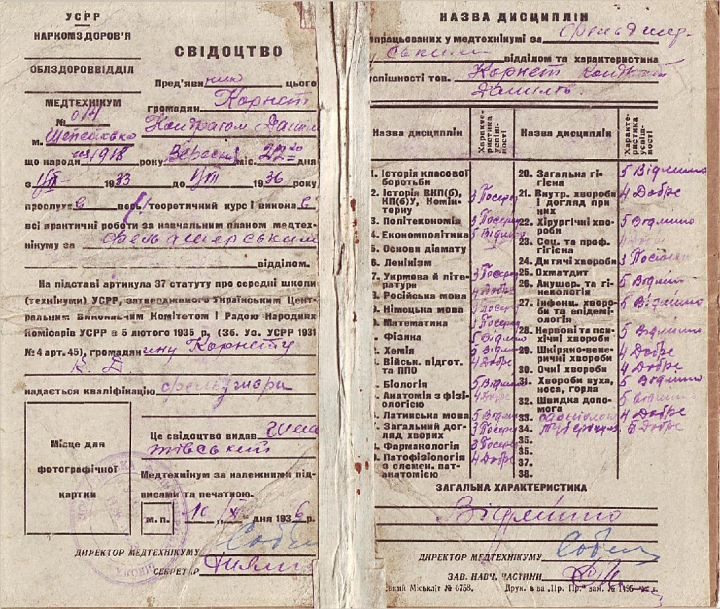 УСРР
НАРКОМЗДОРОВ'Я
ОБЛЗДОРОВВІДДІЛ
МЕДТЕХНІКУМ
№ 014
м. Шепетовка
СВІДОЦТВО
Пред'явнику цього
громадян. Корнет
Кондратом Данил
що народи 1918 року Вересня міс. 22го дня
з 1/ІХ 1933 до 1/ІІІ 1936 року
прослухав теоретичний курс і виконав
всі практичні роботи за навчальним планом медтех-
нікуму за фельдшерським
відділом.
На підставі артикула 37 статуту про середні школи
(технікуми) УСРР, затвердженого Українським Цент-
ральним Виконавчим Комітетом і Радою Народних
Комісарів УСРР в 5 лютого 1935 р. (Зб. Уз. УСРР 1931
№ 4 арт. 45), громадянину Корнету
К. Д.
надається кваліфікація фельдшера
Місце для
фотографічної
картки
Це свідоцтво видав Шепе
тівський
Медтехнікум за належними під-
писами та печаткою.
м.п.
дня 1936 р.
ДИРЕКТОР МЕДТЕХНІКУМУ
СЕКРЕТАР
НАЗВА ДИСЦИПЛІН
опрацьованих у медтехнікумі за фельдшер
ським відділом та характеристика
успішності тов. Корнет Кондрат
Данилов.
Назва дисциплін
Характе-
ристика
успіш-
ності
1. Історія класової
боротьби
2. Історія ВКП(б),
КП(б)У, Комін-
терну 3 Посеред
3. Політекономія 3 Посеред
4. Економполітика 5 Відмінно
5. Основи діамату
6. Ленінізм
7. Укрмова й літе-
ратура 3 Посеред
8. Російська мова 4 Добре
9. Німецька мова 3 Посеред
Математика 3 Посеред
Фізика 5 Відмінно
Хемія 5 Відмін
Військ. підгот.
та ППО 4 Добре
Біологія 5 Відмінно
Анатомія з фізі-
ологією 4 Добре
Латинська мова 5 Відмін
Загальний дог-
ляд хворих 3 Посеред
Фармакологія 3 Посеред
Патофізіологія
з елемен. пат-
анатомією 4 Добре
Назва дисциплін
Характе-
ристика
успіш-
ності
20. Загальна гі-
гієна 5 Відмінно
21. Внутр. хвороби
і догляд при
них 4 Добре
22. Хірургічні хво-
роби 5 Відмінно
23. Соц. та проф.
гігієна 4 Добре
24. Дитячі хвороби 3 Посеред
25. Охматдит
26. Акушер. та гі-
некологія 5 Відмінно
27. Інфекц. хворо-
би та епідемі-
ологія 5 Відмінно
28. Нервові та пси-
хічні хвороби 5 Відмінно
29. Шкіряно-вене-
ричні хвороби 4 Добре
30. Очні хвороби 4 Добре
31. Хвороби вуха,
носа, горла 5 Відмінно
32. Швидка допо-
мога 5 Відмінно
33. 4 Добре
34. 5 Добре
35.
36.
37.
38.
ЗАГАЛЬНА ХАРАКТЕРИСТИКА
Відмінно
ДИРЕКТОР МЕДТЕХНІКУМУ
ЗАВ. НАВЧ. ЧАСТИНИ
ський Міськліт № 6758. Друк. в-ва „Пр. Пр." зам. № 1195